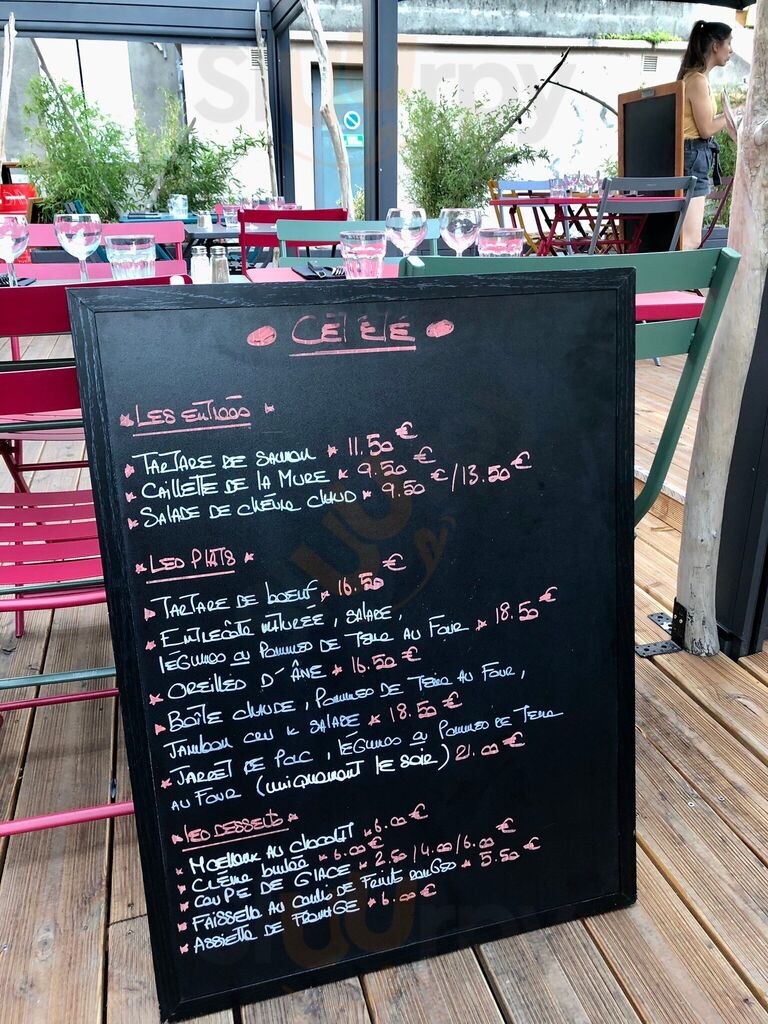 CET ÉTÉ
LES ENTRÉES
TARTARE DE SAUMON 11.50 €
CAILLETTE DE LA MURE 9.50 €
SALADE DE CHÈVRE CHAUD 9.50 € / 13.50 €
LES PLATS
TARTARE DE BOEUF 16.50 €
ENTRECÔTE MATURÉE, SALADE,
LÉGUMES OU POMMES DE TERRE AU FOUR 18.50 €
OREILLES D'ÂNE 16.50 €
BOÎTE CHAUDE, POMMES DE TERRE AU FOUR,
JAMBON CRU & SALADE 18.50 €
JARRET DE PORC, LÉGUMES OU POMMES DE TERRE
AU FOUR (UNIQUEMENT LE SOIR) 21.00 €
LES DESSERTS
MOELLEUX AU CHOCOLAT 6.00 €
CRÈME BRÛLÉE 6.00 €
COUPE DE GLACE 2.50 / 4.00 / 6.00 €
FAISSELLE AU COULIS DE FRUITS ROUGES 5.50 €
ASSIETTE DE FROMAGE 6.00 €